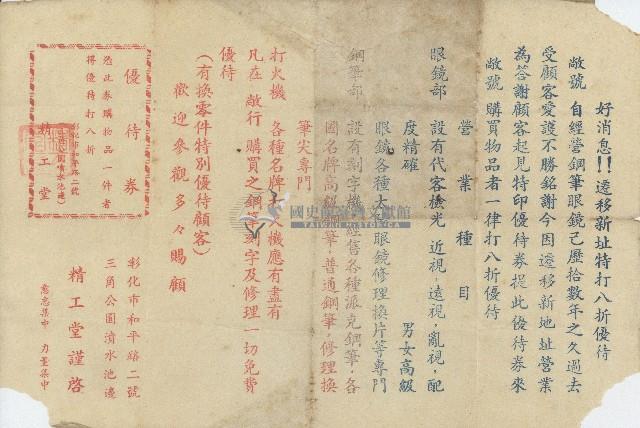 好消息!! 遷移新址特打八折優待
敝號 自經營鋼筆眼鏡已歷拾數年之久過去
受顧客愛護不勝銘謝今因遷移新地址營業
為答謝顧客起見特印優待券提此優待券來
敝號 購買物品者一律打八折優待
營業種目
眼鏡部 設有代客檢光 近視,遠視,亂視,配
度精確 男女高級
眼鏡各種太陽眼鏡修理換片等專門
鋼筆部 設有刻字機經售各種派克鋼筆,各
國名牌高級鋼筆,普通鋼筆,修理換
筆尖專門
打火機 各種名牌打火機應有盡有
凡在 敝行 購買之鋼筆刻字及修理一切免費
優待
(有換零件特別優待顧客)
歡迎參觀多々賜顧
精工堂謹啓
彰化市和平路二號
三角公園噴水池邊
意志集中 力量集中
優待券
憑此券購物品一件者
得優待打八折
彰化市和平路二號
精工堂
國史館臺灣文獻館
TAIWAN HISTORICA